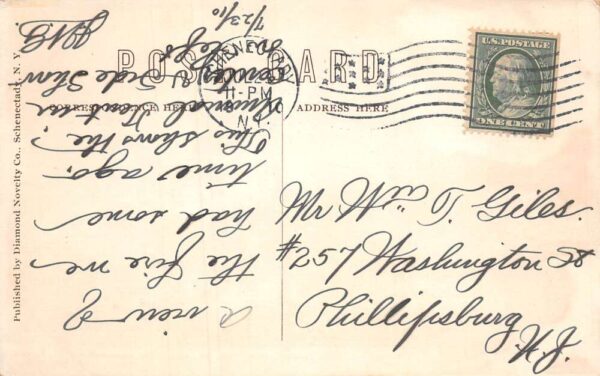 POST CARD
CORRESPONDENCE HERE
ADDRESS HERE
U.S. POSTAGE
ONE CENT
SCHENECTADY
11-PM
N.Y.
Mr Wm T. Giles.
#257 Washington St
Phillipsburg
N.J.
a view of
the fire we
had some
time ago.
This shows the
Side Show
7/23/10
Published by Diamond Novelty Co., Schenectady, N. Y.